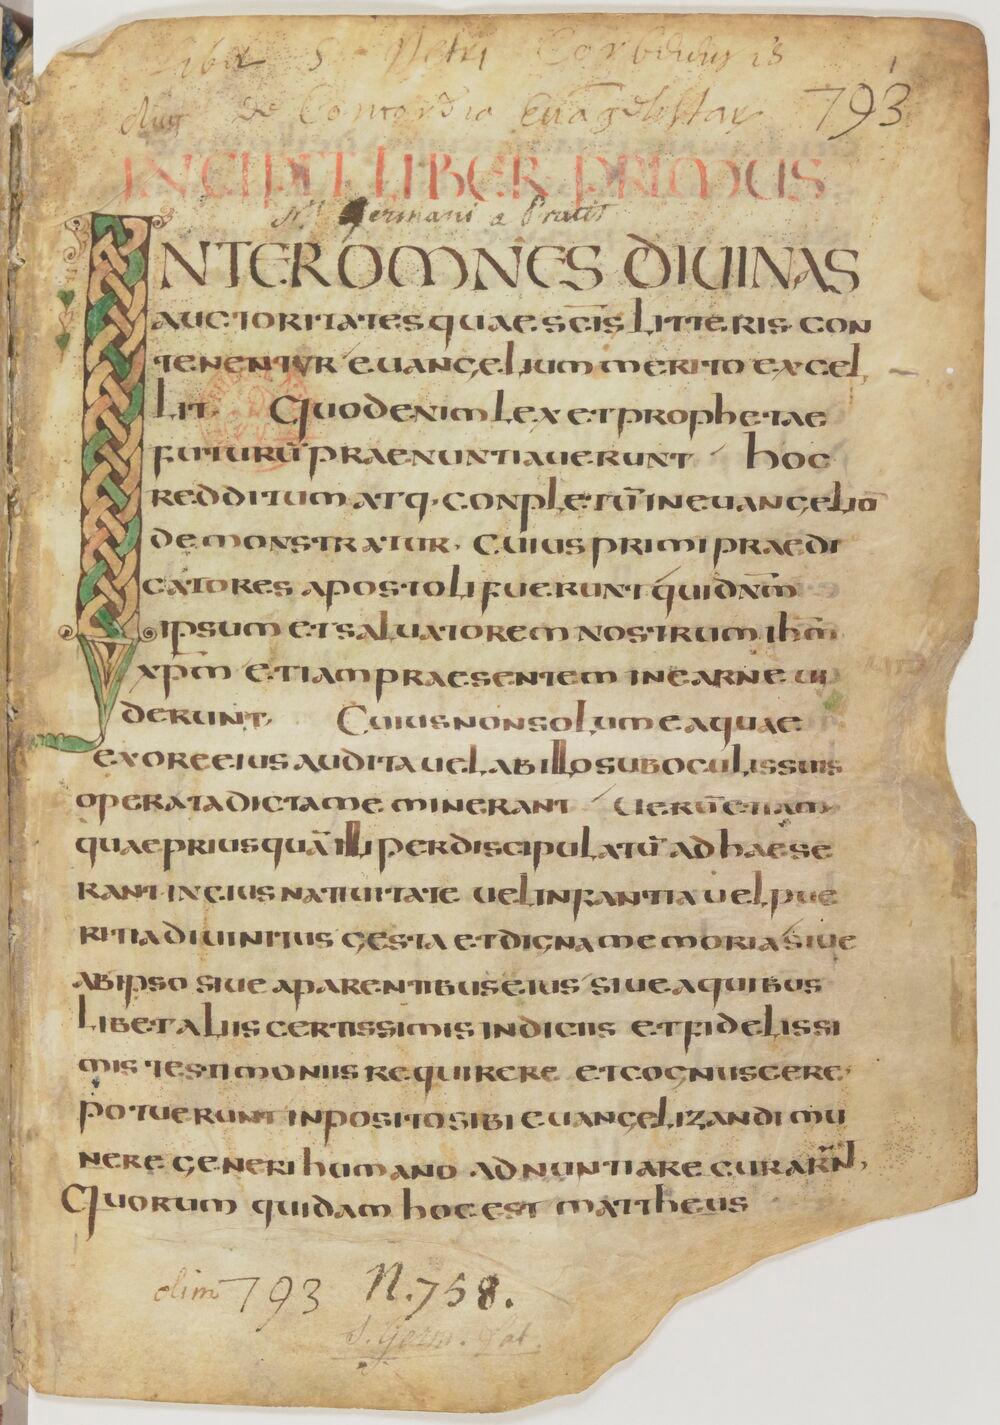 Liber S Petri Corbeiensis
Aug de Concordia Euāgelistar 793
INCIPIT LIBER PRIMUS
Sti Germani a Pratis
INTER OMNES DIUINAS
AUCTORITATES QUAE SC̄IS LITTERIS CON
TENENTUR EUANGELIUM MERITO EXCEL
LIT Quod enim lex et prophetae
futurū praenuntiauerunt hoc
redditum atq· conpletū in euangeliō
demonstratur· Cuius primi praedi
catores apostoli fuerunt qui dnm̄
ipsum et saluatorem nostrum ihm̄
xpm etiam praesentem in carne ui
derunt Cuius non solum ea quae
ex ore eius audita uel ab illo sub oculis suis
operata dicta meminerant Uerū etiam
quae priusquā illi per discipulatū adhaese
rant in eius natiuitate uel infantia uel pue
ritia diuinitus gesta et digna memoria siue
ab ipso siue a parentibus eius siue a quibus
libet aliis certissimis indiciis et fidelissi
mis testimoniis requirere et cognuscere
potuerunt inposito sibi euangelizandi mu
nere generi humano adnuntiare curarn̄t,
Quorum quidam hoc est mattheus
olim 793 N.758.
S. Germ. lat.